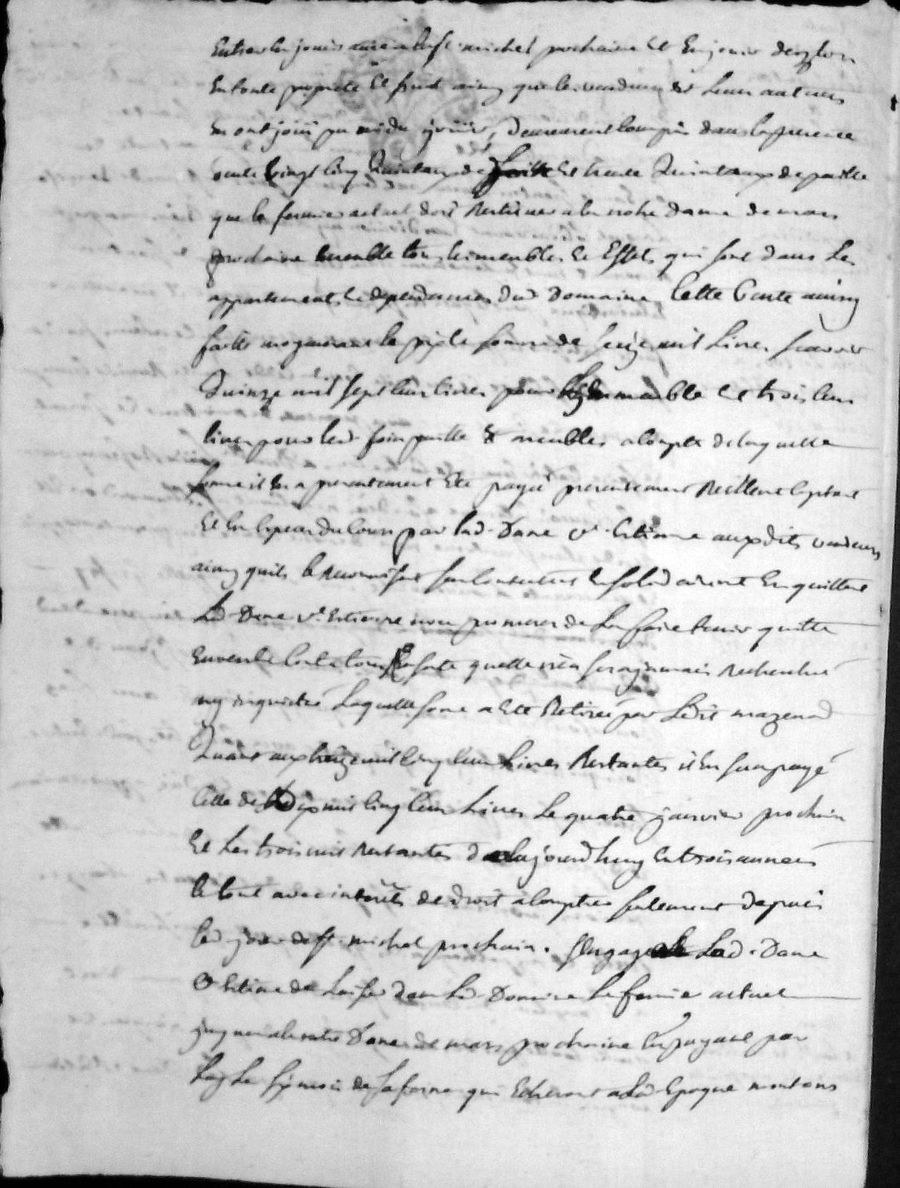 Entrer en jouissance a la st michel prochaine et En jouir des lors
En toute propriete Et fruit ainsy que les vendeurs & leurs auteurs
En ont joui pu ou du jouir, Demeurent compris dans la presente
vente vingt cinq Quintaux de foin Et trente Quintaux de paille
que le fermier actuel doit Restituer a la notre dame de mars
prochaine Ensemble tous les meubles Et Effets qui sont dans les
appartements Et dependances dud Domaine. Cette Vente ainsy
faitte moyenant le prix Et somme de seize mil Livres scavoir
Quinze mil sept cens livres pour les immeuble Et trois cens
livres pour led foin paille & meubles a compte de laquelle
somme il En a presentement Ete payé presentement Reellement
Et En Especes du Cours par lad. Dame ve Etienne auxdits vendeurs
ainsy quils le Reconnoissent Et solidairement En quittent
Lad. Dame ve Etienne avec promesse de La faire tenir quitte
Envers Et Contre tous En sorte quelle n'en sera jamais Recherchée
ny inquietée Laquelle somme a Ete Retirée par Ledit mazenod
Quant aux treize mil cinq cens Livres Restantes il En sera payé
Celle de Dix mil cinq cens Livres Le quatre janvier prochain
Et Les trois mil Restantes d'aujourd'huy En trois années
le tout avec interêts de droit a compter seulement depuis
led. jour de st. michel prochain. s'engage Lad. Dame
Etienne de Laisser dans Led. Domaine Le fermier actuel
jusques a la notre Dame de mars prochaine En payant par
Luy Le six mois de sa ferme qui Echeront a lad Epoque montans